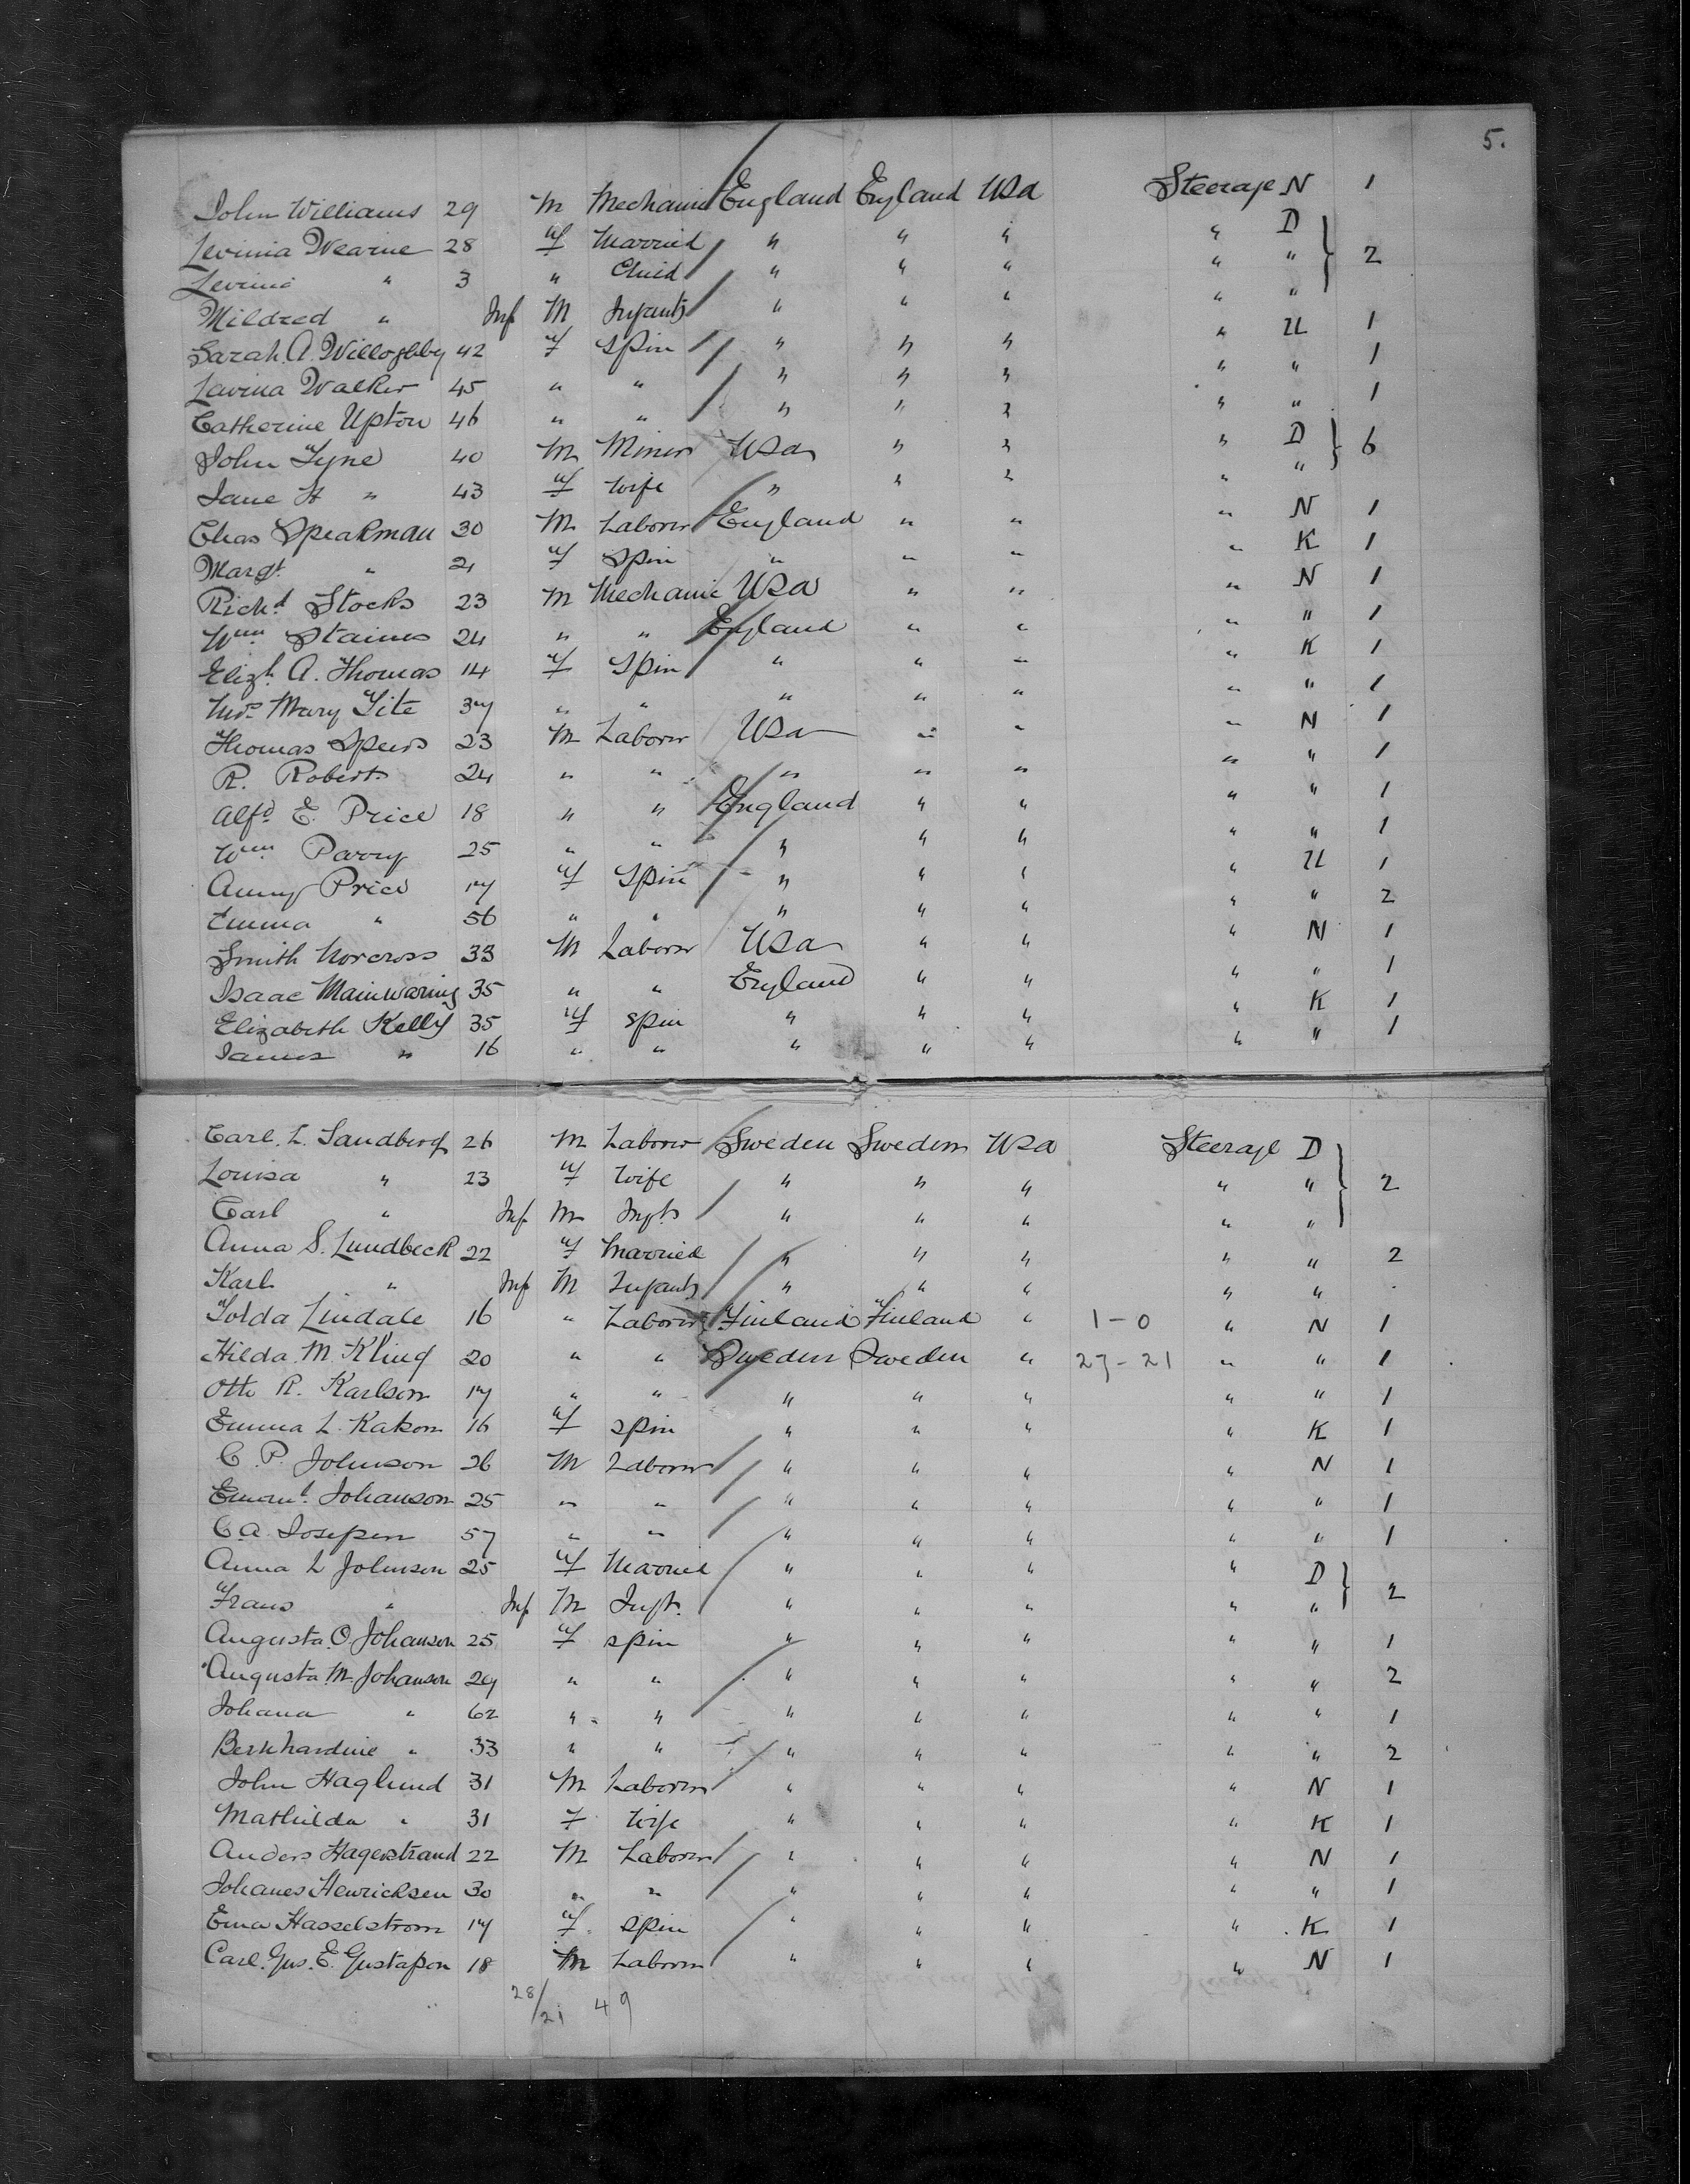 5.
John Williams 29 M Mechanic England England USA Steerage N 1
Levinia Wearne 28 f Married " " " " D
Levinia " 3 " Child " " " " " 2
Mildred " Inf M Infant " " " "
Sarah. A. Willoghby 42 f Spin " " " " U 1
Lavina Walker 45 " " " " " " " 1
Catherine Upton 46 " " " " " " " 1
John Tyne 40 M Miner USA " " " D 6
Jane H " 43 f Wife " " " " "
Chas Speakman 30 M Laborer England " " " N 1
Margt. " 21 f Spin " " " " K 1
Richd Stocks 23 M Mechanic USA " " " N 1
Wm Staines 24 " " England " " " " 1
Elizh A. Thomas 14 f Spin " " " " K 1
Mrs Mary Tite 37 " " " " " " " 1
Thomas Speers 23 M Laborer USA " " " N 1
R. Roberts 24 " " " " " " " 1
Alfd E. Price 18 " " England " " " " 1
Wm Parry 25 " " " " " " " 1
Anny Price 17 f Spin " " " " U 1
Emma " 56 " " " " " " " 2
Smith Norcross 33 M Laborer USA " " " N 1
Isaac Mainwaring 35 " " England " " " " 1
Elizabeth Kelly 35 f spin " " " " K 1
James " 16 " " " " " " " 1
Carl. L. Sandberg 26 M Laborer Sweden Sweden USA Steerage D
Louisa " 23 f Wife " " " " " 2
Carl " Inf M Inft " " " " "
Anna S. Lundbeck 22 f Married " " " " " 2
Karl " Inf M Infant " " " " "
Tolda Lindale 16 " Laborer Finland Finland " 1-0 " N 1
Hilda. M. Kling 20 " " Sweden Sweden " 27-21 " " 1
Otto R. Karlson 17 " " " " " " " 1
Emma L. Kalson 16 f spin " " " " K 1
C. P. Johnson 26 M Laborer " " " " N 1
Johanson 25 " " " " " " " 1
C. A. 57 " " " " " " " 1
Anna L Johnson 25 f Married " " " " D
Frans " Inf M Inft. " " " " " 2
Augusta. O. Johanson 25 f spin " " " " " 1
Augusta. M. Johanson 29 " " " " " " " 2
Johana " 62 " " " " " " " 1
Bernhardine " 33 " " " " " " " 2
John Haglund 31 M Laborer " " " " N 1
Mathilda " 31 F Wife " " " " K 1
Anders Hagerstrand 22 M Laborer " " " " N 1
Johanes Henricksen 30 " " " " " " " 1
Ema Hasselstrom 17 f spin " " " " K 1
Carl. Gus. E. Gustafson 18 M Laborer " " " " N 1
28/21 49